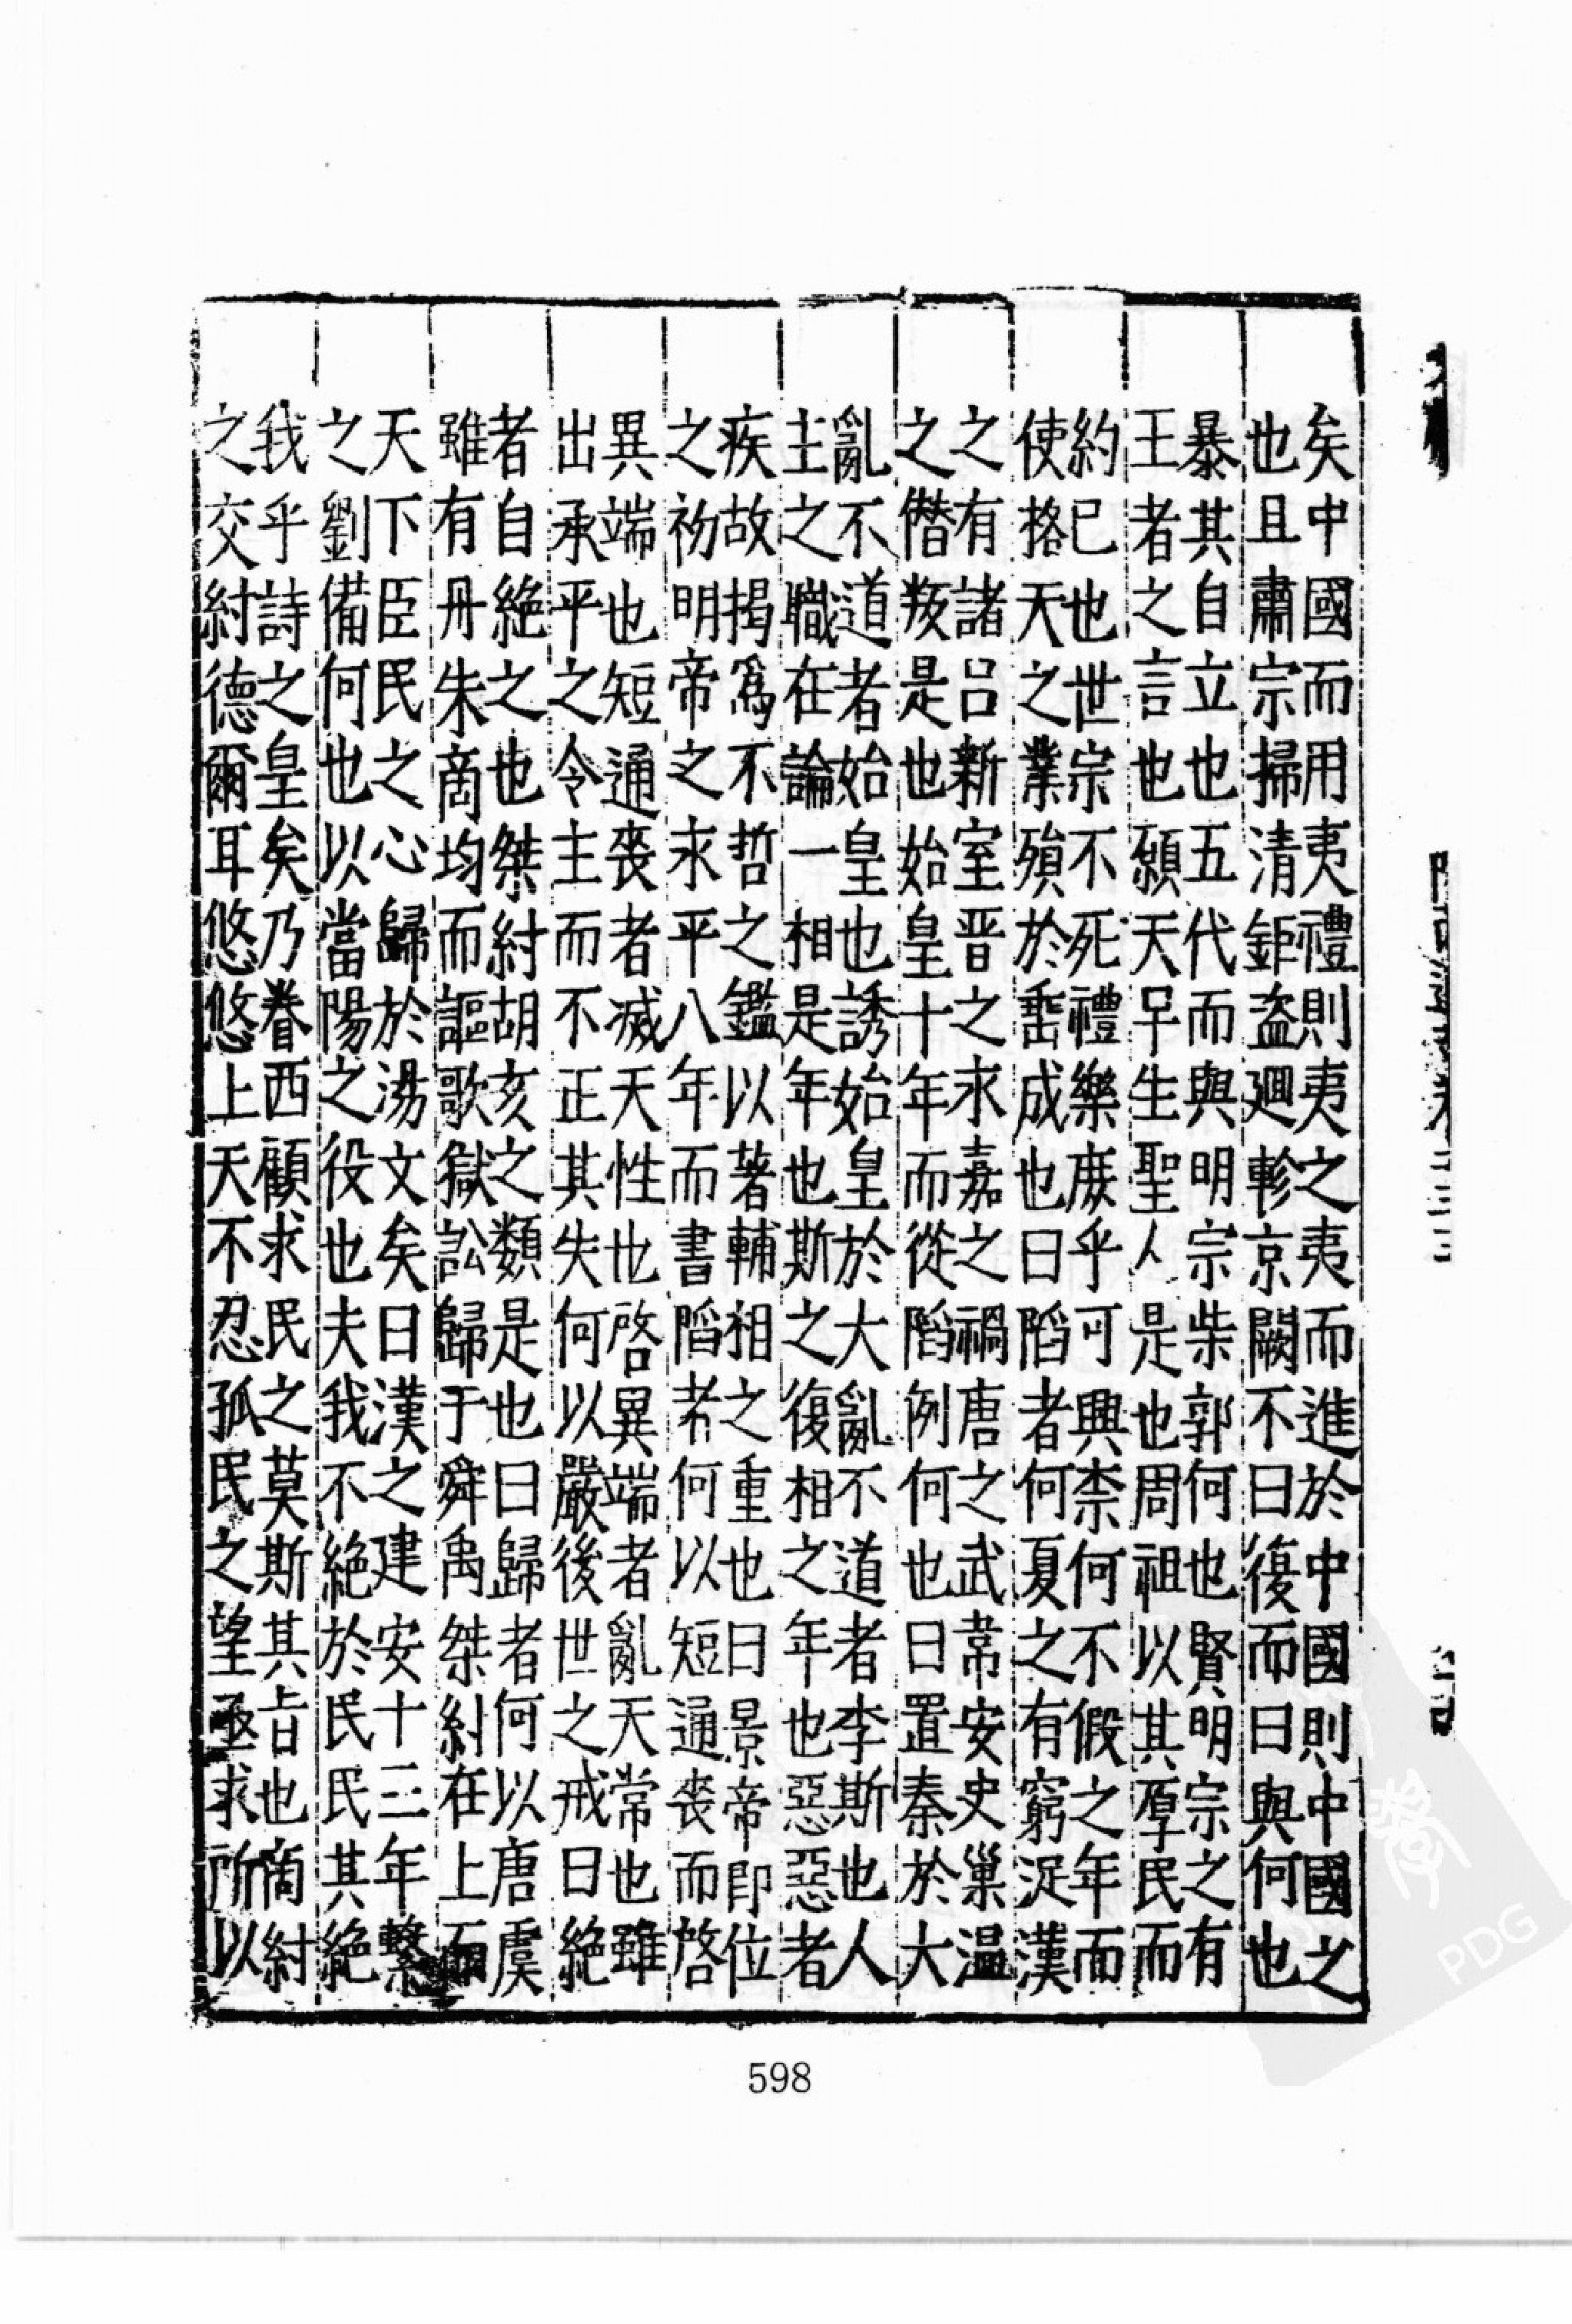 矣中國而用夷禮則夷之夷而進於中國則中國之
也且肅宗掃清鉅盜迴軫京闕不曰復而曰與何也
暴其自立也五代而與明宗柴郭何也賢明宗之有
王者之言也願天早生聖人是也周祖以其厚民而
約己也世宗不死禮樂庶乎可興柰何不假之年而
使格天之業殞於垂成也曰陷者何夏之有窮浞漢
之有諸呂新室晉之永嘉之禍唐之武韋安史巢溫
之僭叛是也始皇十年而從陷例何也曰置秦於大
亂不道者始皇也誘始皇於大亂不道者李斯也人
主之職在論一相是年也斯之復相之年也惡惡者
疾故揭爲不哲之鑑以著輔相之重也曰景帝即位
之初明帝之永平八年而書陷者何以短通喪而啓
異端也短通喪者滅天性也啓異端者亂天常也雖
出承平之令主而不正其失何以嚴後世之戒曰絶
者自絶之也桀紂胡亥之類是也曰歸者何以唐虞
雖有丹朱商均而謳歌獄訟歸于舜禹桀紂在上而
天下臣民之心歸於湯文矣曰漢之建安十三年繫
之劉備何也以當陽之役也夫我不絶於民民其絶
我乎詩之皇矣乃眷西顧求民之莫斯其旨也商紂
之交紂德爾耳悠悠上天不忍孤民之望亟求所以
598